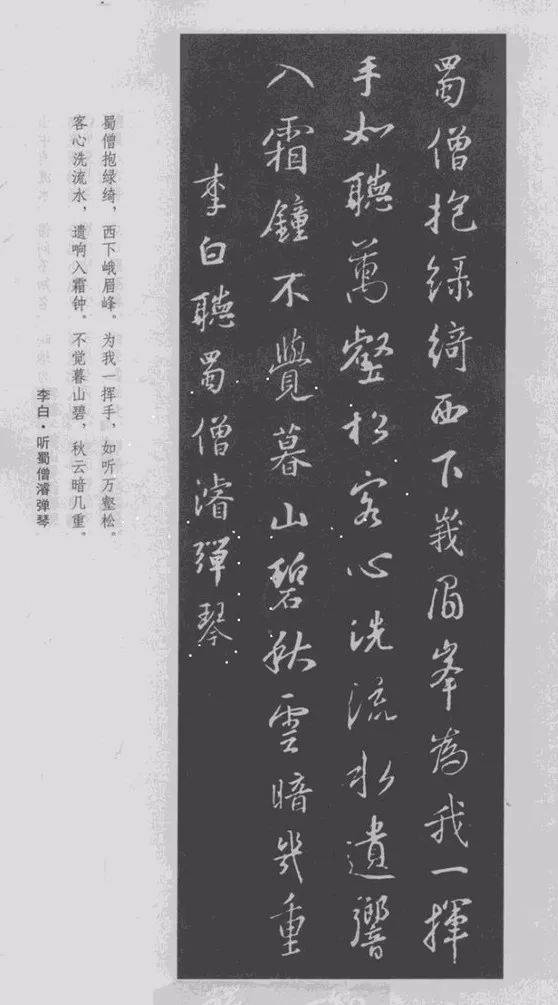 蜀僧抱綠綺西下峨眉峯為我一揮
手如聽萬壑松客心洗流水遺響
入霜鐘不覺暮山碧秋雲暗幾重
李白聽蜀僧濬彈琴
蜀僧抱绿绮，西下峨眉峰。为我一挥手，如听万壑松。
客心洗流水，遗响入霜钟。不觉暮山碧，秋云暗几重。
李白·听蜀僧濬弹琴